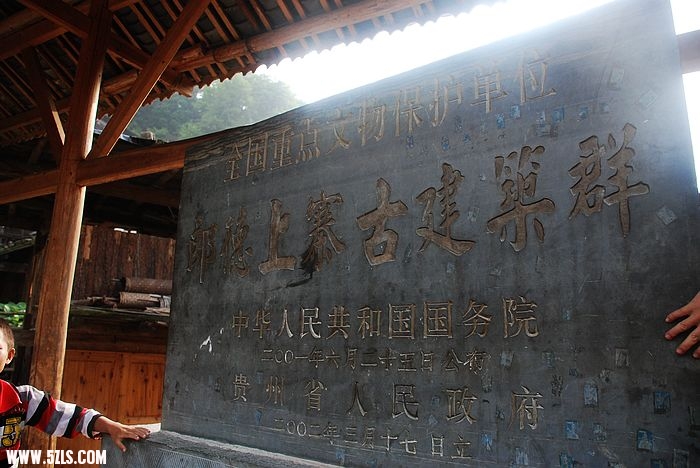 全国重点文物保护单位
郎德上寨古建築群
中华人民共和国国务院
二〇〇一年六月二十五日公布
贵州省人民政府
二〇〇二年三月十七日立
WWW.5ZLS.COM